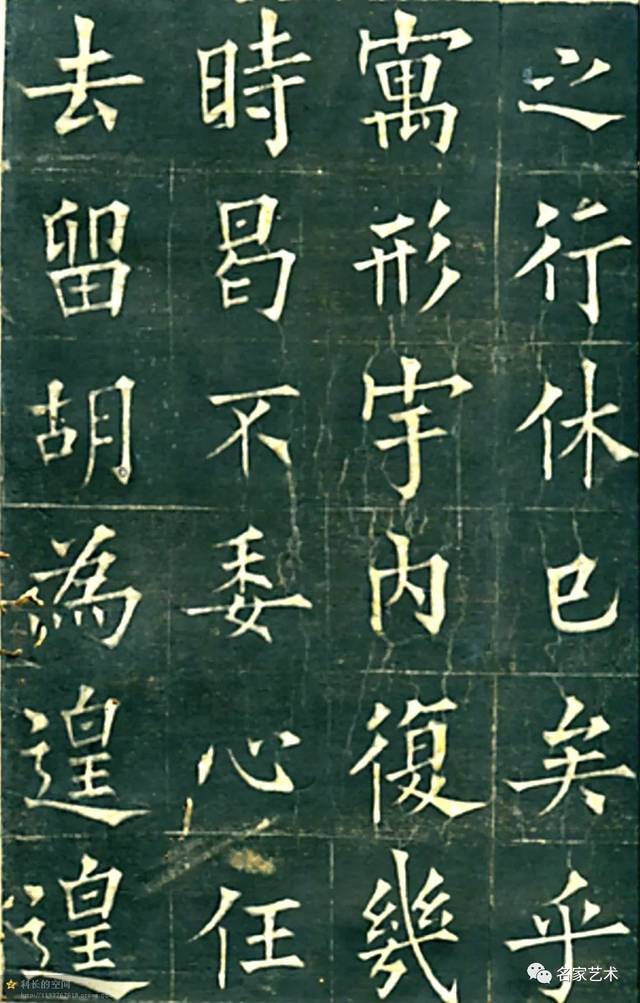 之行休已矣乎
寓形宇内復幾
時曷不委心任
去留胡為遑遑
科长的空间
名家艺术